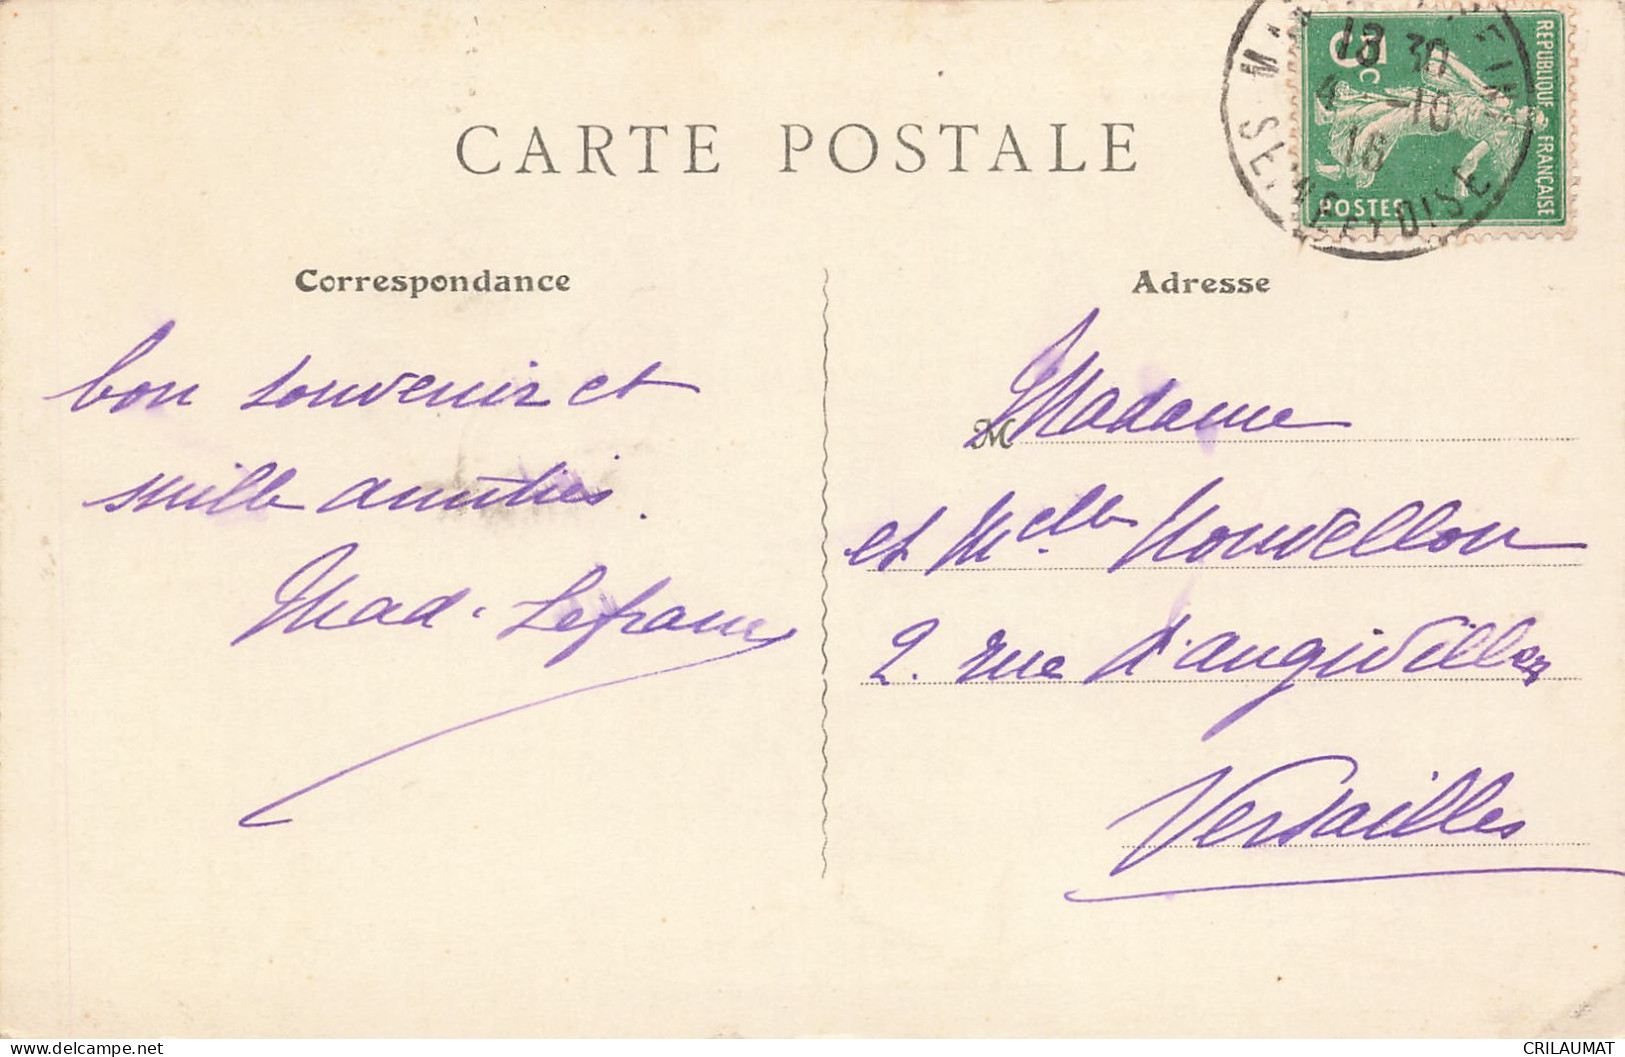 CARTE POSTALE
Correspondance
bon souvenir et
mille amitiés.
Mad. Lefranc
Adresse
M Madame
et Melle Nouvellon
2. rue d'angiviller
Versailles
REPUBLIQUE FRANÇAISE
POSTES
5 C
13 30
4 -10
16
SEINE ET OISE
www.delcampe.net
CRILAUMAT